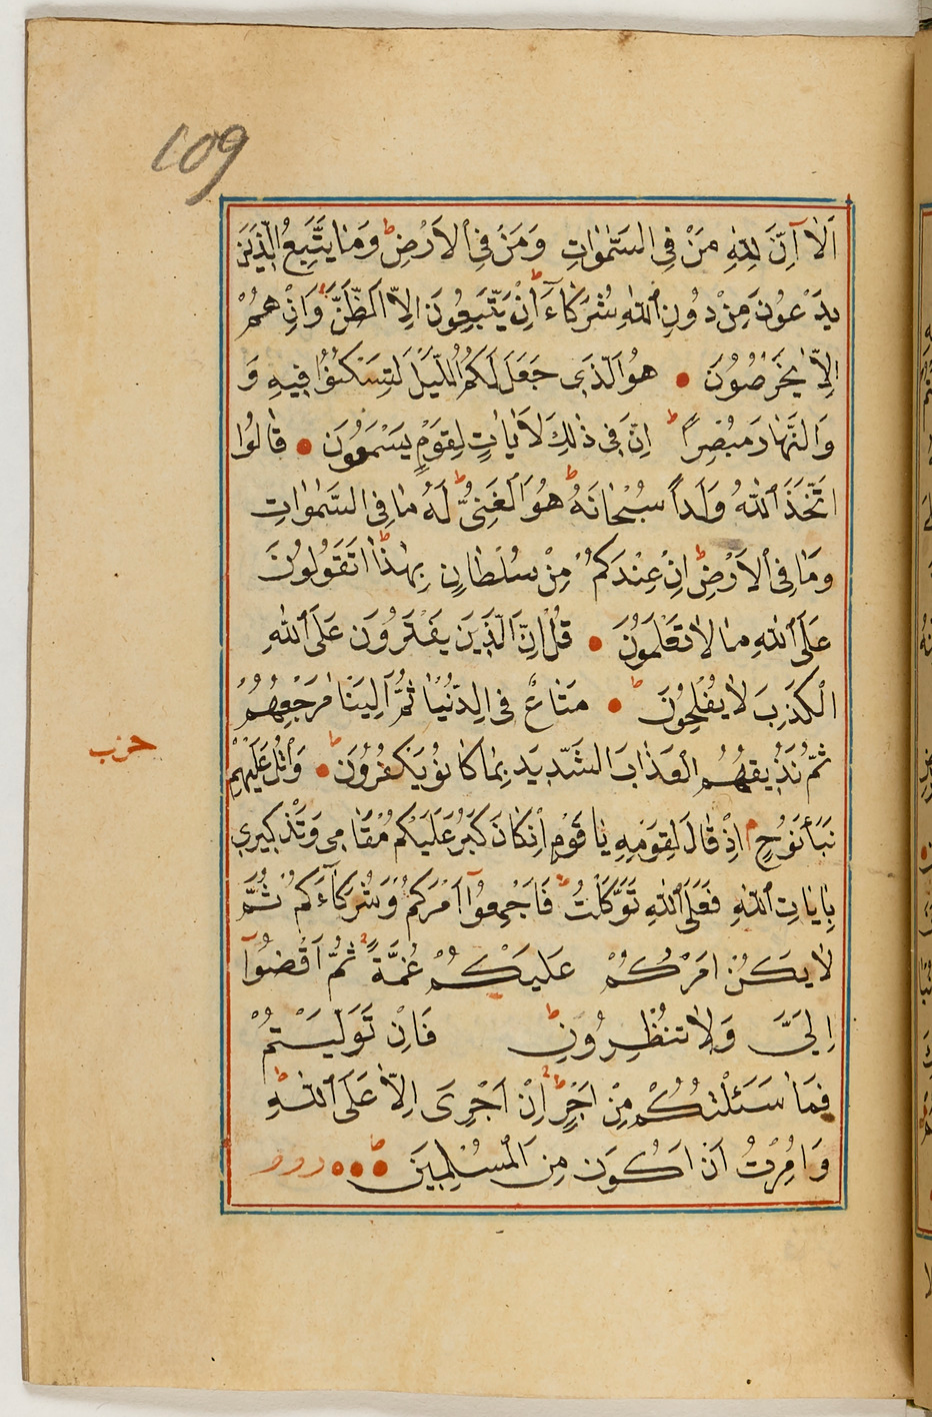 109
اَلٰا آِنَّ لِلّٰهِ مَنْ فِى السَّمٰوٰاتِ وَمَنْ فِى ٱلاَرْضِ ط وَمٰا يَتَّبِعُ الَّذَيْنَ
يدَْعوُنَ مِنْ دوُنِ ٱللّٰهِ شُرَكٰاءَ ط اِنْ يَتَّبَعِوُنَ اِلاّٰ اَلظَّنَّ وَاِنْ همُْ
اِلاّٰ يخَرْصُوُنَ هوَُالَّذَى جَعَلَ لَكُمُ اللَّيْلَ لتِسَْكنُوُا فيِهِ وَ
وَالنَّهٰارَ مبُصِْراً ط اِنَّ فى ذٰلِكَ لَاٰيٰاتٍ لِقوَْمٍ يسَْمعَوُنَ قٰالُوا
اتَّخَذَ ٱللّٰهُ وَلَداً سبُْحٰانَهُ ط هُوَ ٱلْغَنِىُّ ط لَهُ مٰا فِى السَّمٰوٰاتِ
وَمٰا فِى ٱلاَرْضِ ط اِنْ عِنْدَكمُْ مِنْ سلُطٰانٍ بِهٰذٰا ط اَتَقَوُلوُنَ
عَلَى ٱللّٰهِ مٰا لٰا تعَْلَموُنَ قلُْ اِنَّ الَّذَيِنَ يفَْتَروُنَ عَلَى ٱللّٰهِ
الْكَذِبَ لٰا يُفْلِحوُنَ ط مَتٰاعٌ فى الِدّنُيْٰا ثمَُّ اِليَنٰا مَرْجَعِهُمُْ
ثمَُّ نذُيِقهُُمُ الْعَذٰابَ الشَّديَد بِمٰا كٰانوُ يَكْفُروُنَ ط وَٱتْلُ عَلَيْهِمْ
حزب
نَبَأَ نوُحٍ م اِذْ قٰالَ لِقوَْمِهِ يٰا قَوْمِ اِنْ كٰانَ كَبُرَ عَلَيْكمُْ مَقٰامى وَتَذْكيرِى
بِاٰيٰاتِ ٱللّٰهِ فَعَلَى ٱللّٰهِ تَوَكَّلْتُ ط فَاَجْمِعوُۤا اَمْرَكمُْ وَشُرَكٰاءَكمُْ ثُمَّ
لٰا يَكُنْ اَمْرُكُمْ عَليَْكُمْ غُمَّةً ثمَُّ اَقْضُوۤا
اِلَىَّ وَلٰا تنُْظِروُنِ ط فَاِنْ تَوَلَيَّْتمُْ
فَمٰا سَئَلْتُكُمْ مِنْ اَجْرٍ ط اِنْ اَجْرِىَ اِلاّٰ عَلَى ٱللّٰهِ ط
وَاُمِرْتُ اَنْ اَكُونَ مِنَ الْمُسْلِمينَ